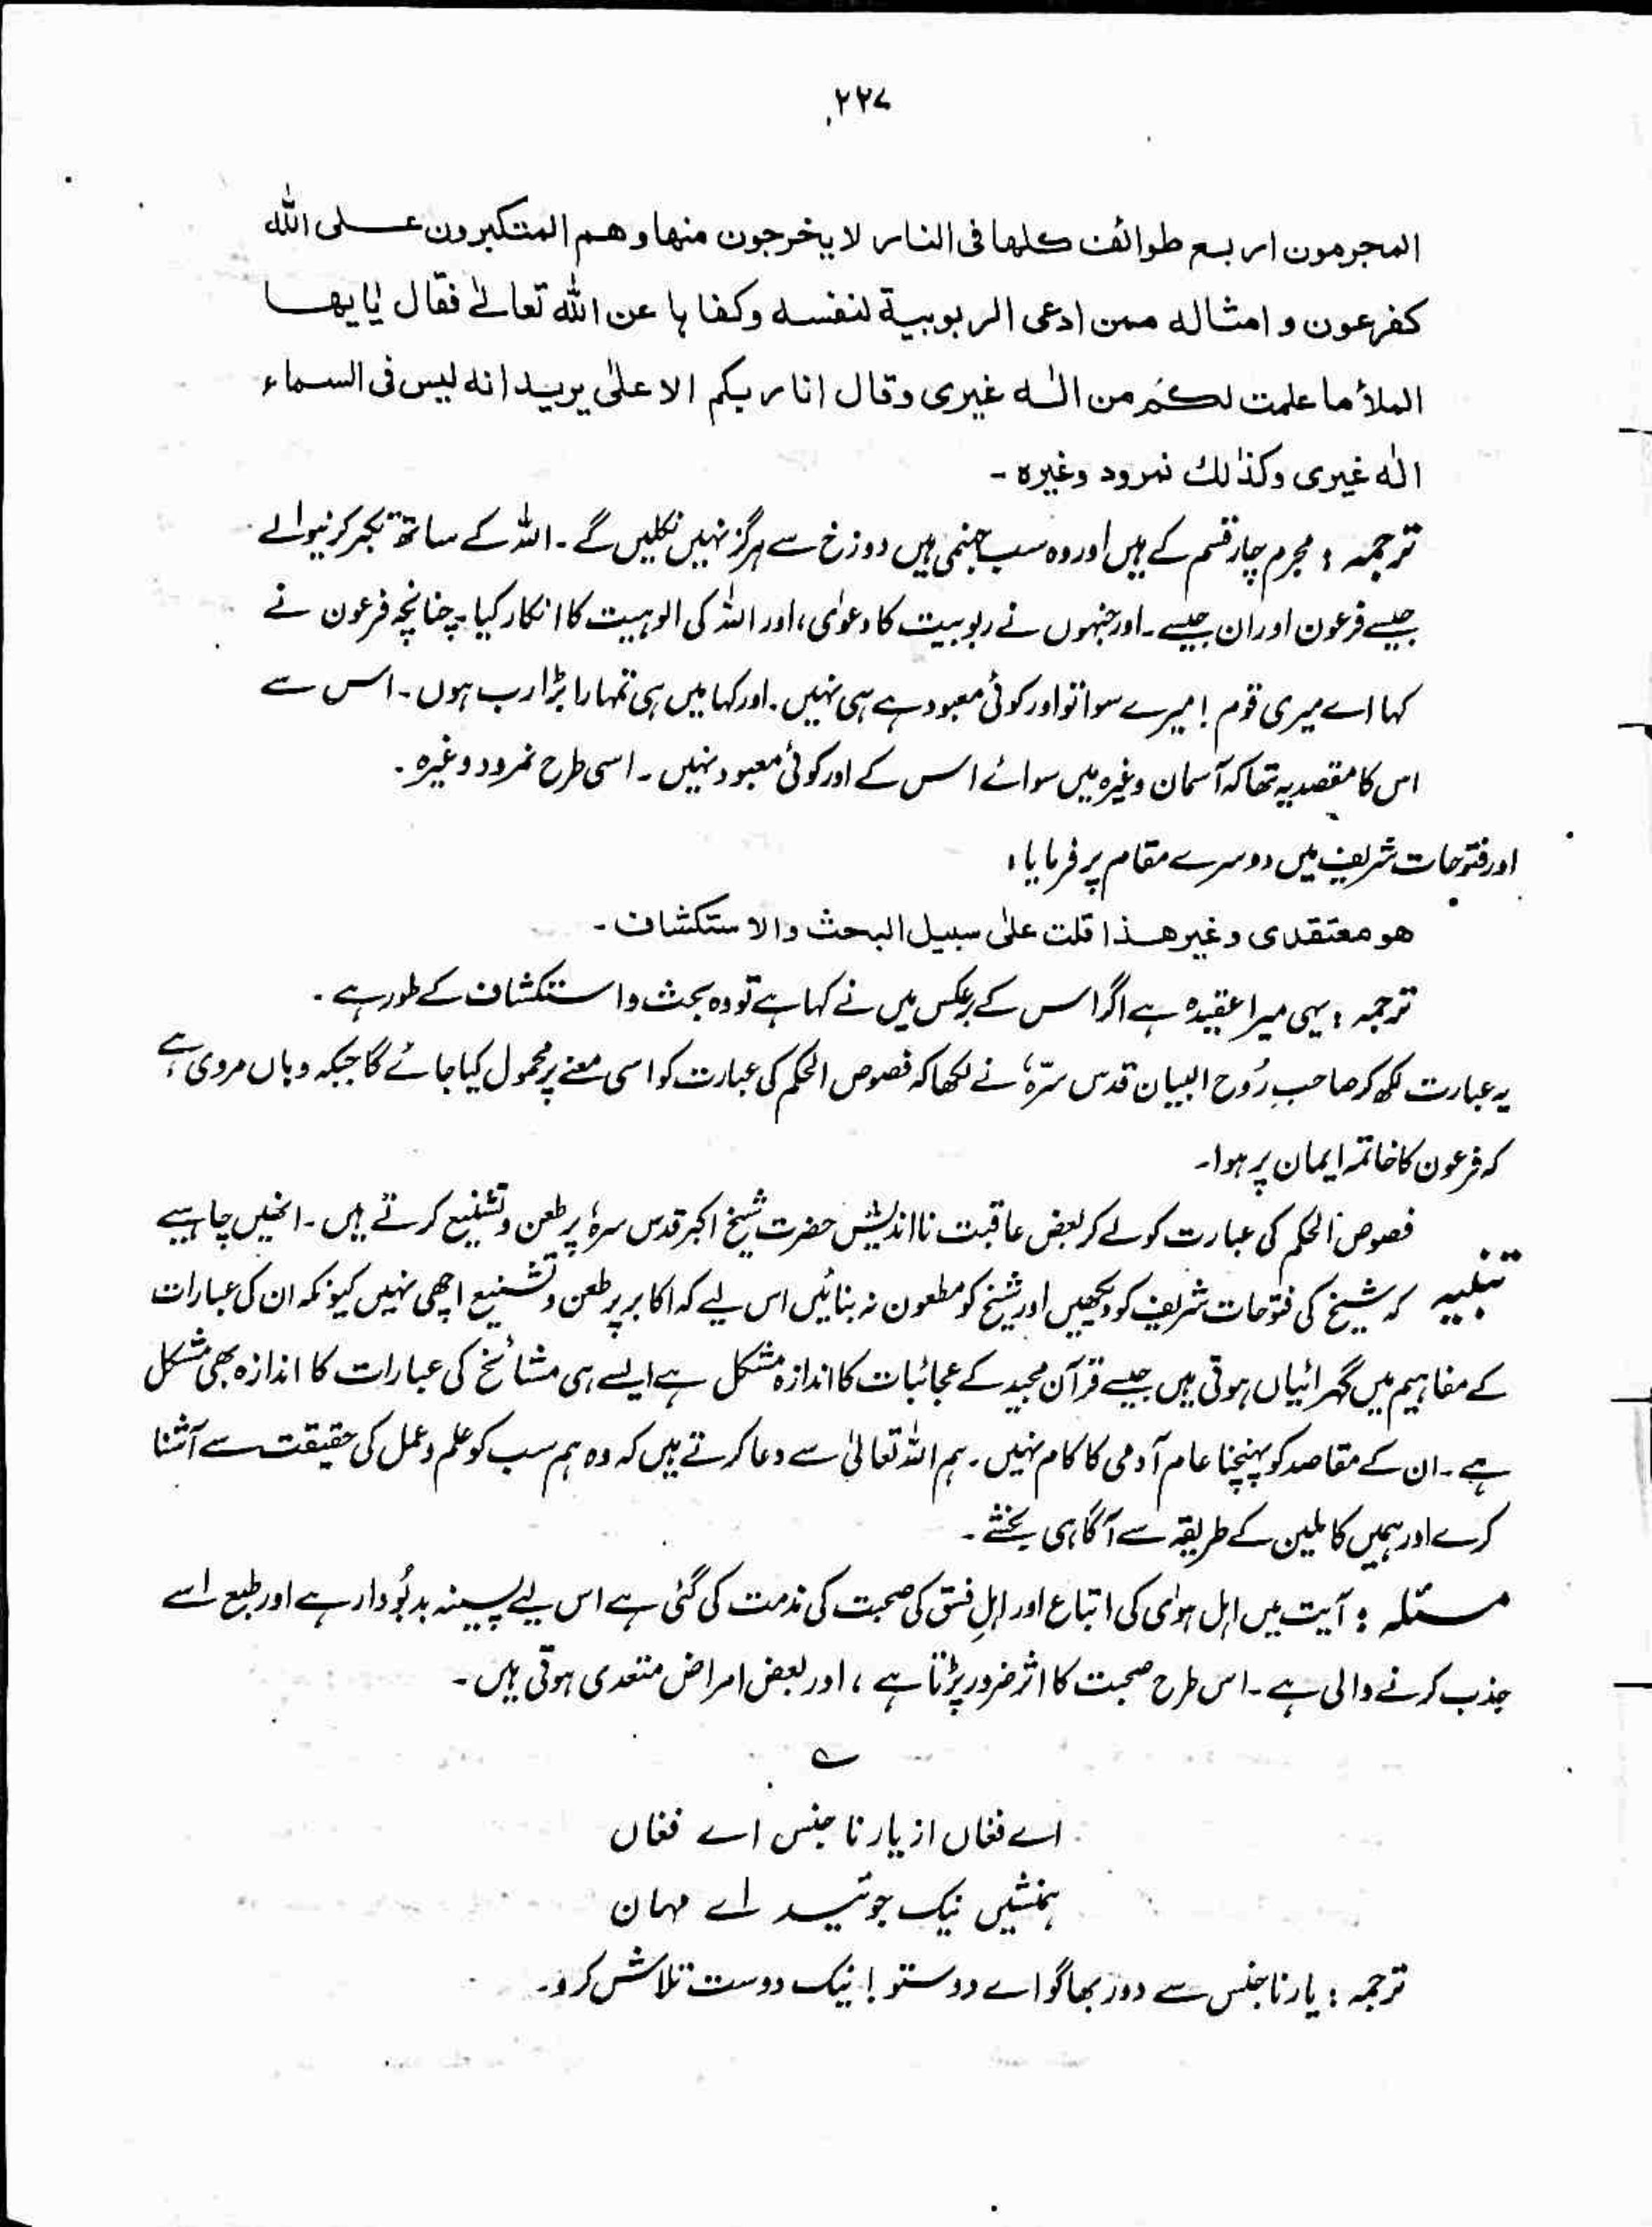 ۲۲۷
المجرمون اربع طوائف كلها فى النار لا يخرجون منها وهم المتكبرون على الله
كفرعون و امثاله ممن ادعى الربوبية لنفسه وكفاها عن الله تعالىٰ فقال يٰايها
الملأ ما علمت لكم من الٰه غيرى وقال انا ربكم الاعلىٰ يريد انه ليس فى السماء
الٰه غيرى وكذالك نمرود وغيره -
ترجمہ : مجرم چار قسم کے ہیں اور وہ سب جہنمی ہیں دوزخ سے ہرگز نہیں نکلیں گے ۔ اللہ کے ساتھ تکبر کرنیوالے
جیسے فرعون اور ان جیسے ۔ اور جنہوں نے ربوبیت کا دعوٰی ، اور اللہ کی الوہیت کا انکار کیا ۔ چنانچہ فرعون نے
کہا اے میری قوم ! میرے سوا تو اور کوئی معبود ہے ہی نہیں ۔ اور کہا میں ہی تمہارا بڑا رب ہوں ۔ اس سے
اس کا مقصد یہ تھا کہ آسمان وغیرہ میں سوائے اس کے اور کوئی معبود نہیں ۔ اسی طرح نمرود وغیرہ ۔
اور فتوحات شریف میں دوسرے مقام پر فرمایا ؛
هو معتقدى وغير هذا قلت علىٰ سبيل البحث والاستكشاف -
ترجمہ : یہی میرا عقیدہ ہے اگر اس کے برعکس میں نے کہا ہے تو وہ بحث و استکشاف کے طور ہے ۔
یہ عبارت لکھ کر صاحبِ رُوح البیان قدس سرّہٗ نے لکھا کہ فصوص الحکم کی عبارت کو اسی معنے پر محمول کیا جائے گا جبکہ وہاں مروی ہے
کہ فرعون کا خاتمہ ایمان پر ہوا ۔
فصوص الحکم کی عبارت کو لے کر بعض عاقبت نااندیش حضرت شیخ اکبر قدس سرہٗ پر طعن و تشنیع کرتے ہیں ۔ انھیں چاہیے
تنبیہ کہ شیخ کی فتوحات شریف کو دیکھیں اور شیخ کو مطعون نہ بنائیں اس لیے کہ اکابر پر طعن و تشنیع اچھی نہیں کیونکہ ان کی عبارات
کے مفاہیم میں گہرائیاں ہوتی ہیں جیسے قرآن مجید کے عجائبات کا اندازہ مشکل ہے ایسے ہی مشائخ کی عبارات کا اندازہ بھی مشکل
ہے ۔ ان کے مقاصد کو پہنچنا عام آدمی کا کام نہیں ۔ ہم اللہ تعالیٰ سے دعا کرتے ہیں کہ وہ ہم سب کو علم و عمل کی حقیقت سے آشنا
کرے اور ہمیں کاملین کے طریقہ سے آگاہی بخشے ۔
مسئلہ : آیت میں اہل ہوٰی کی اتباع اور اہلِ فسق کی صحبت کی مذمت کی گئی ہے اس لیے پسینہ بدبُودار ہے اور طبع اسے
جذب کرنے والی ہے ۔ اس طرح صحبت کا اثر ضرور پڑتا ہے ، اور بعض امراض متعدی ہوتی ہیں ۔
؎
اے فغاں از یار ناجنس اے فغاں
ہمنشیں نیک جوئید اے مہاں
ترجمہ : یار ناجنس سے دور بھاگو اے دوستو ! نیک دوست تلاش کرو ۔